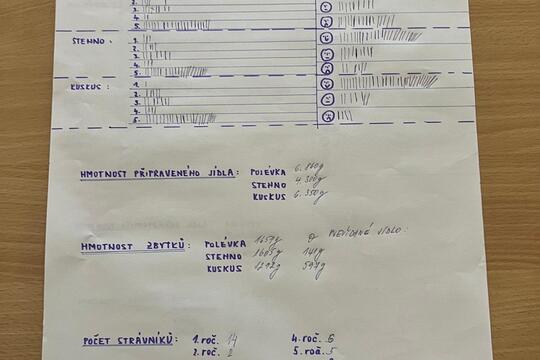 2.
3.
4.
5.
STEHNO : 1.
2.
3.
4.
5.
KUSKUS : 1.
2.
3.
4.
5.
HMOTNOST PŘIPRAVENÉHO JÍDLA : POLÉVKA 6.860g
STEHNO 4.300g
KUSKUS 6.350g
HMOTNOST ZBYTKŮ : POLÉVKA 1657g NEVYDANÉ JÍDLO :
STEHNO 1605g 141g
KUSKUS 1292g 597g
POČET STRÁVNÍKŮ : 1. roč. 14 4. roč. 6
2. roč. 2 5. roč. 5